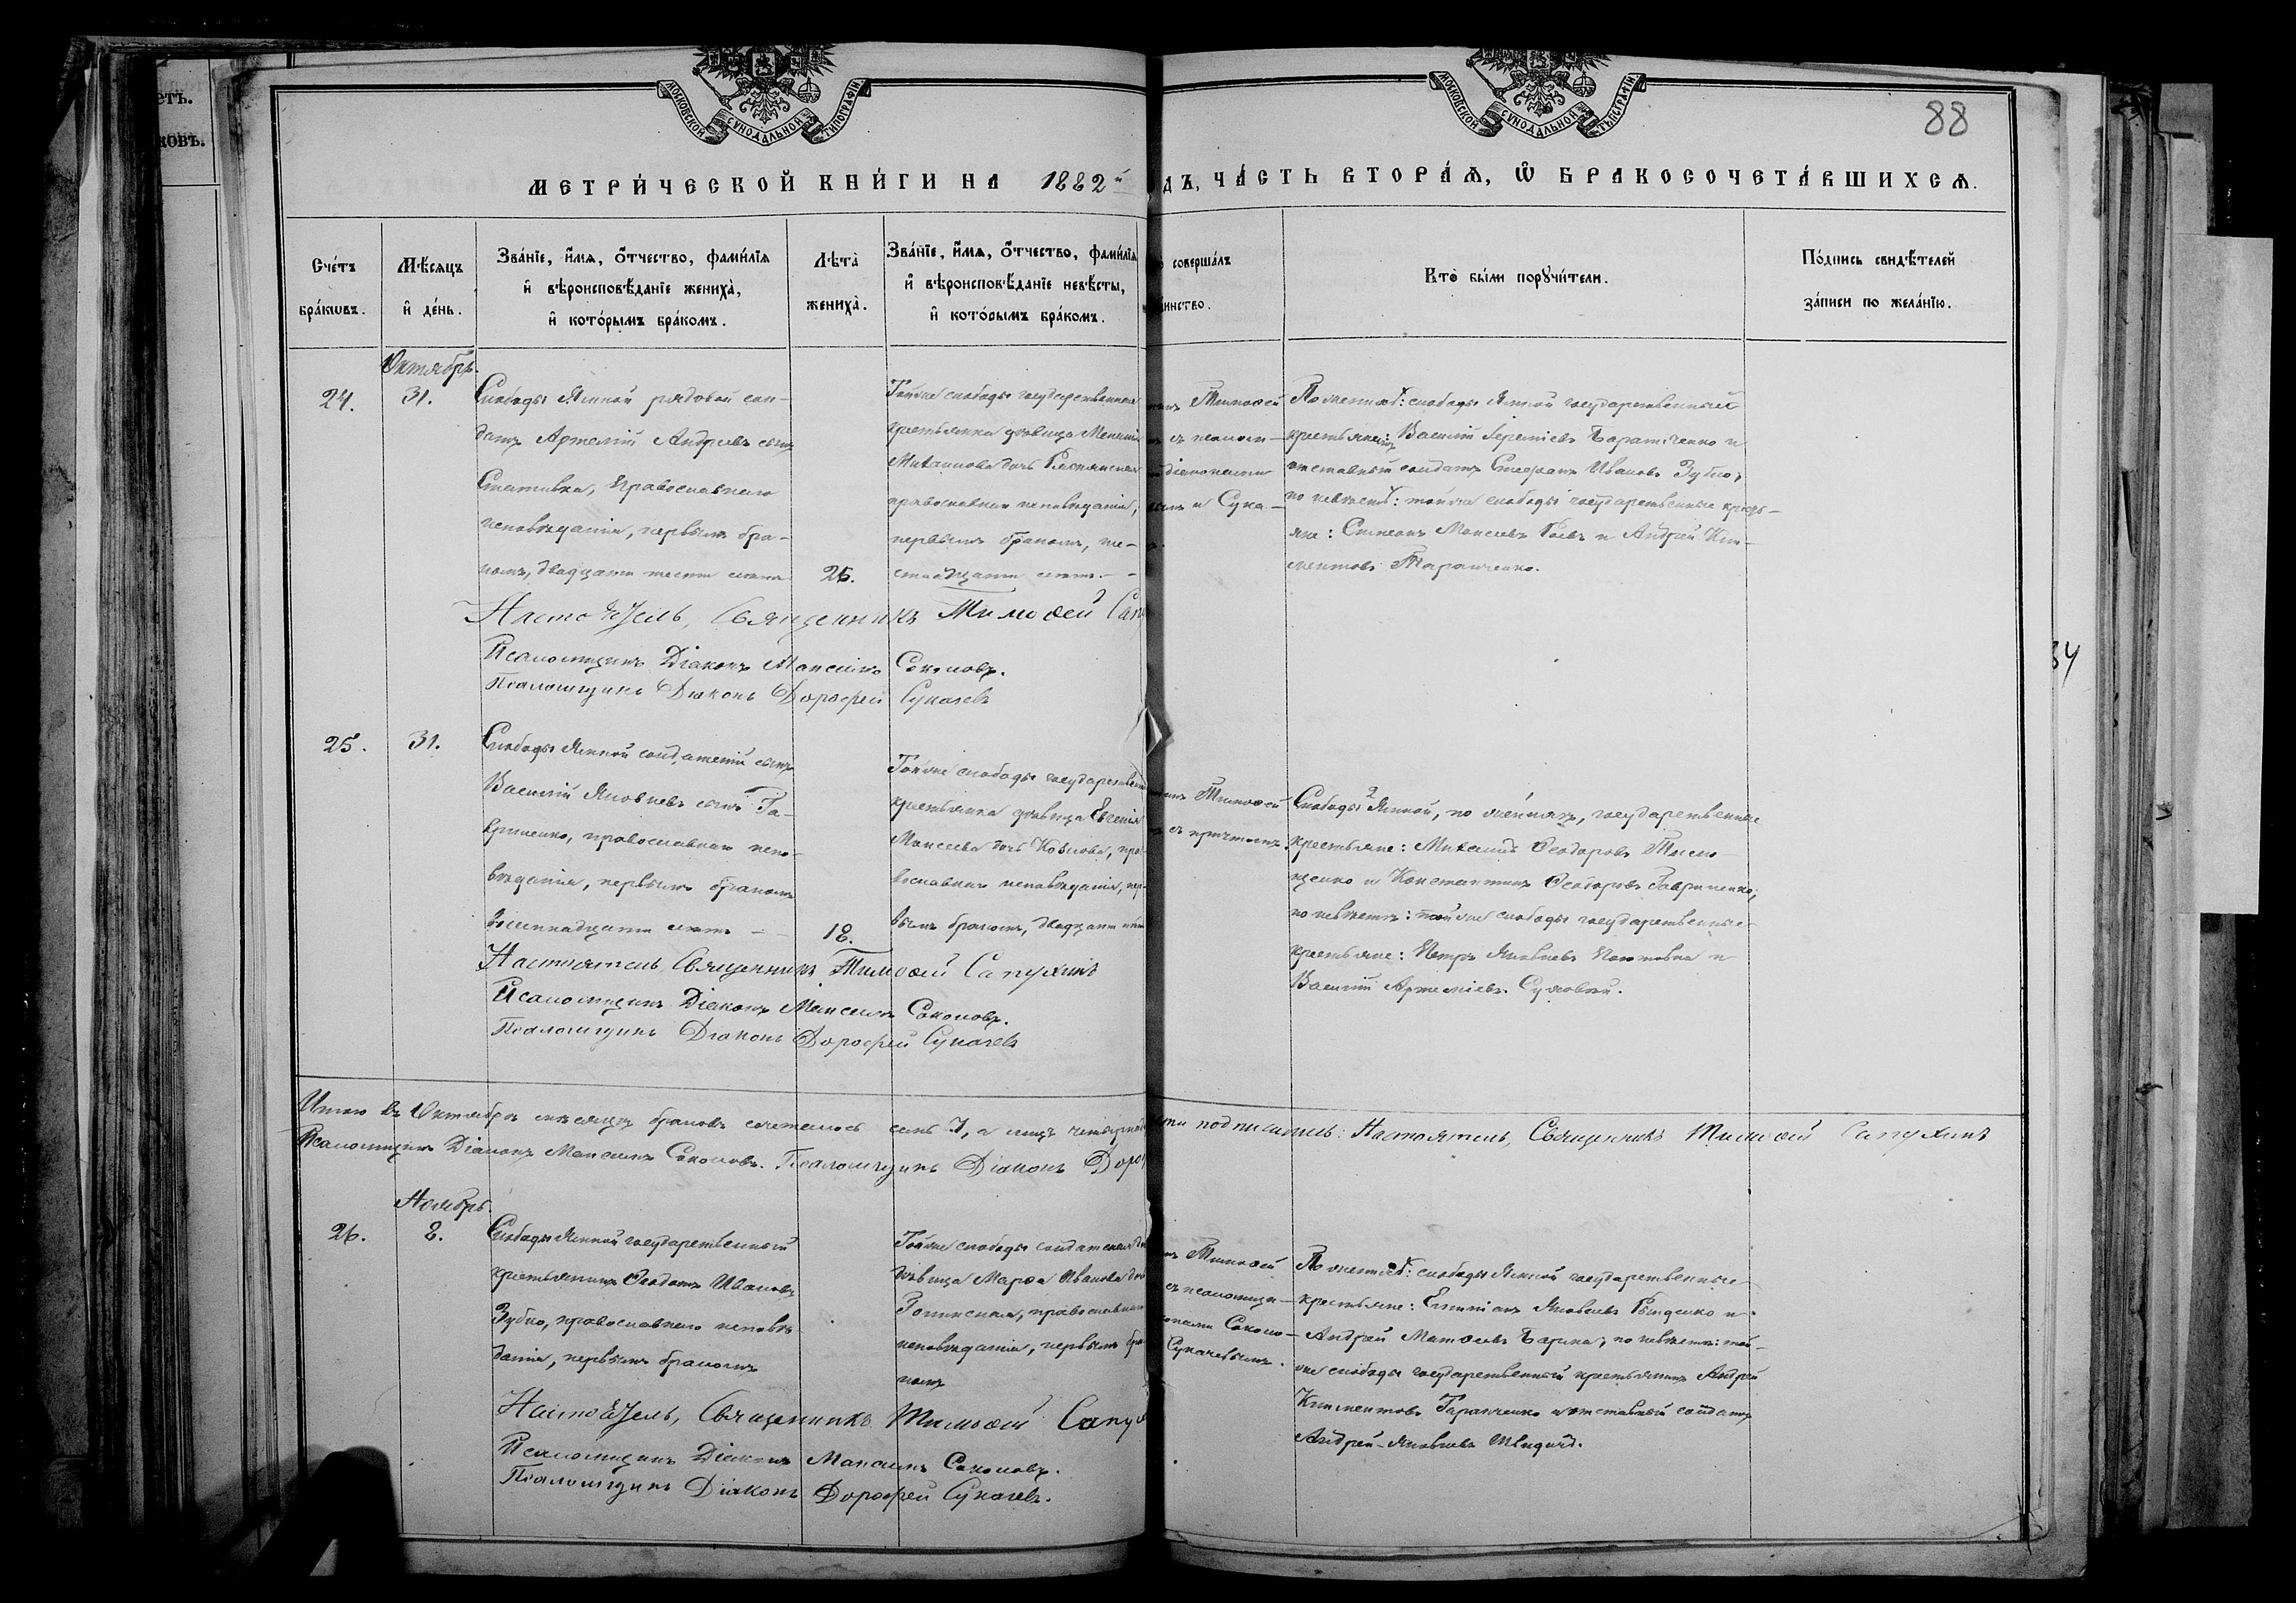 етъ.
ковъ.
МОСКОВСКОЙ СѴНОДАЛЬНОЙ ТИПОГРАФІИ
МОСКОВСКОЙ СѴНОДАЛЬНОЙ ТИПОГРАФІИ
88
МЕТРИ́ЧЕСКОЙ КНИ́ГИ НА 1882й
ДЪ, ЧА́СТЬ ВТОРА́Ѧ, Ѽ БРАКОСОЧЕТА́ВШИХСѦ.
Сче́тъ бра́кωвъ.
Мѣ́сѧцъ и҆ де́нь.
Зва́нїе, и҆́мѧ, ѻ҆́тчество, фами́лїѧ
и҆ вѣроисповѣ́данїе жениха̀,
и҆ кото́рымъ бра́комъ.
Лѣта̀ жениха̀.
Зва́нїе, и҆́мѧ, ѻ҆́тчество, фами́лїѧ
и҆ вѣроисповѣ́данїе невѣ́сты,
и҆ кото́рымъ бра́комъ.
соверша́лъ
инство.
Кто̀ бы́ли порꙋчи́тели.
По́дпись свидѣ́телей
за́писи по жела́нїю.
Октябрь.
24.
31.
Слободы Ямной рядовой сол-
датъ Артемій Андреевъ сынъ
православнаго
исповѣданія, первымъ бра-
комъ, двадцати шести лѣтъ
26.
Тойже слободы государственная
крестьянка дѣвица
Михаилова дочь
православнаго исповѣданія,
первымъ бракомъ, ше-
стнадцати лѣтъ.
Тимоѳей
съ псалом-
діаконами
и Сука-
По женихѣ: слободы Ямной государственный
крестьянинъ Василій и
отставной солдатъ Стефанъ Ивановъ Зубко,
по невѣстѣ: тойже слободы государственные кресть-
яне: Моисеевъ и Андрей Кли-
ментовъ Таранченко.
Настоятель, Священникъ Тимоѳей Сапу
Псаломщикъ Діаконъ Максимъ Соколовъ.
Псаломщикъ Діаконъ Дорофей Сукачевъ
34
25.
31.
Слободы Ямной солдатскій сынъ
Василій Яковлевъ сынъ Га-
вриленко, православнаго испо-
вѣданія, первымъ бракомъ
восемнадцати лѣтъ
18.
Тойже слободы государствен
крестьянка дѣвица Евгенія
Моисеева дочь Козлова, пра-
вославнаго исповѣданія, пер-
вымъ бракомъ, двадцати
Тимоѳей
съ причтомъ.
Слободы Ямной, по женихѣ, государственные
крестьяне: Михаилъ Ѳеодоровъ Тимо-
щенко и Константинъ Ѳеодоровъ Гавриленко;
по невѣстѣ: тойже слободы государственные
крестьяне: Петръ Яковлевъ и
Василій Артеміевъ
Настоятель, Священникъ Тимоѳей Сапухинъ
Псаломщикъ Діаконъ Максимъ Соколовъ.
Псаломщикъ Діаконъ Дорофей Сукачевъ
Итого въ Октябрѣ мѣсяцѣ браковъ сочеталось семь 7, а лицъ четырнад
подписались: Настоятель, Священникъ Тимоѳей Сапухинъ
Псаломщикъ Діаконъ Максимъ Соколовъ. Псаломщикъ Діаконъ Доро
Ноябрь.
26.
8.
Слободы Ямной государственный
крестьянинъ Ѳеодотъ Ивановъ
Зубко, православнаго исповѣ-
данія, первымъ бракомъ
Тойже слободы солдатская
дѣвица Марѳа Иванова
православнаго
исповѣданія, первымъ бра
комъ
Тимоѳей
съ псаломщи-
конами Соколо-
Сукачевымъ.
По женихѣ: слободы Ямной государственные
крестьяне: Яковлевъ и
Андрей Матѳеевъ по невѣстѣ: той-
же слободы государственный крестьянинъ Андрей
Климентовъ Таранченко и отставной солдатъ
Андрей Яковлевъ
Настоятель, Священникъ Тимоѳей Сапу
Псаломщикъ Діаконъ Максимъ Соколовъ.
Псаломщикъ Діаконъ Дорофей Сукачевъ.